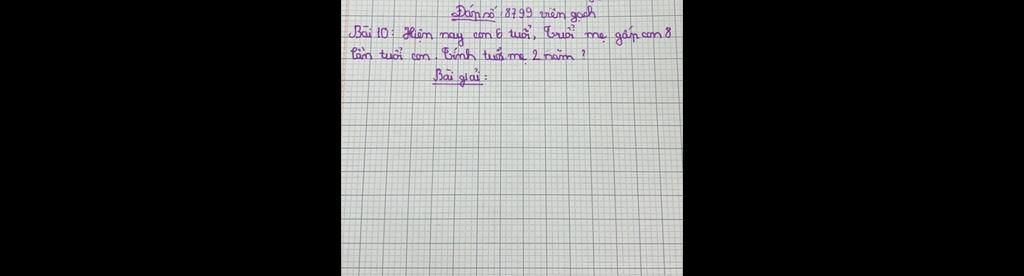 Đáp số: 8799 viên gạch
Bài 10: Hiện nay con 6 tuổi, tuổi mẹ gấp con 8
lần tuổi con. Tính tuổi mẹ 2 năm?
Bài giải: